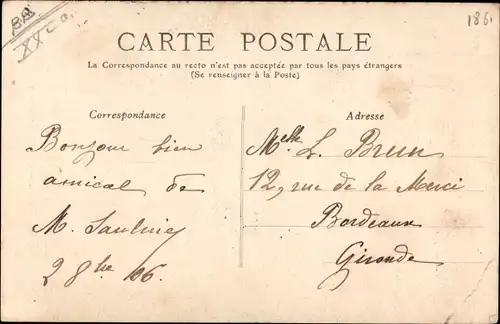 XX c.a.
186
CARTE POSTALE
La Correspondance au recto n'est pas acceptée par tous les pays étrangers
(Se renseigner à la Poste)
Correspondance
Bonjour bien
amical de
M. Saulnier
2 8bre 06.
Adresse
Melle L. Brun
12, rue de la Merci
Bordeaux
Gironde